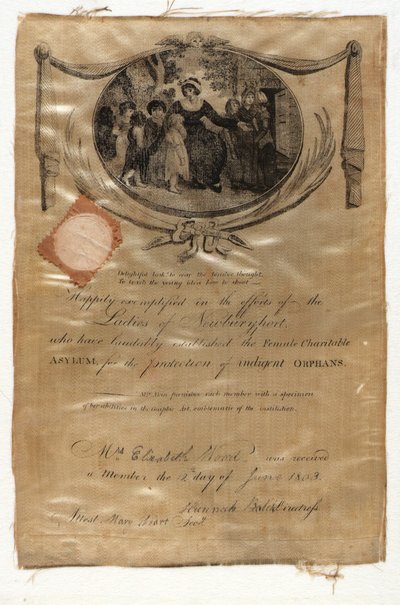 Delightful task! to rear the tender thought,
To teach the young idea how to shoot
Happily exemplified in the efforts of the
Ladies of Newburyport,
who have laudably established the Female Charitable
ASYLUM, for the protection of indigent ORPHANS.
furnishes each member with a specimen
of her abilities in the Graphic Art, emblematic of the institution.
Mrs Elizabeth Wood, was received
a Member the 2d day of June 1803.
Hannah
Attest. Mary